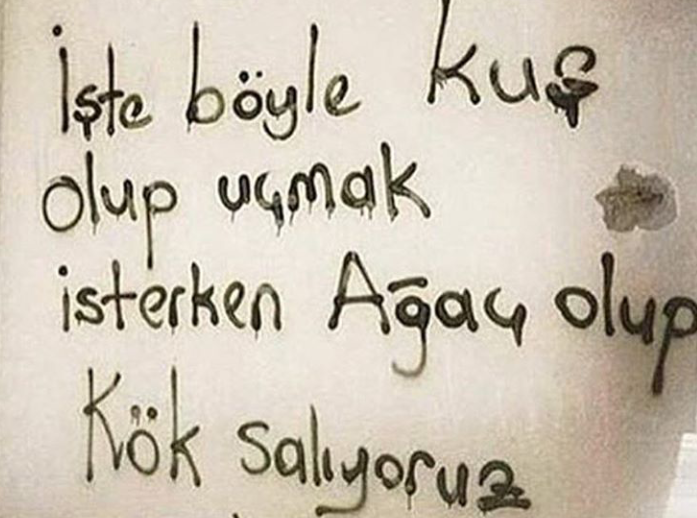 İşte böyle kuş
olup uçmak
isterken Ağaç olup
Kök salıyoruz